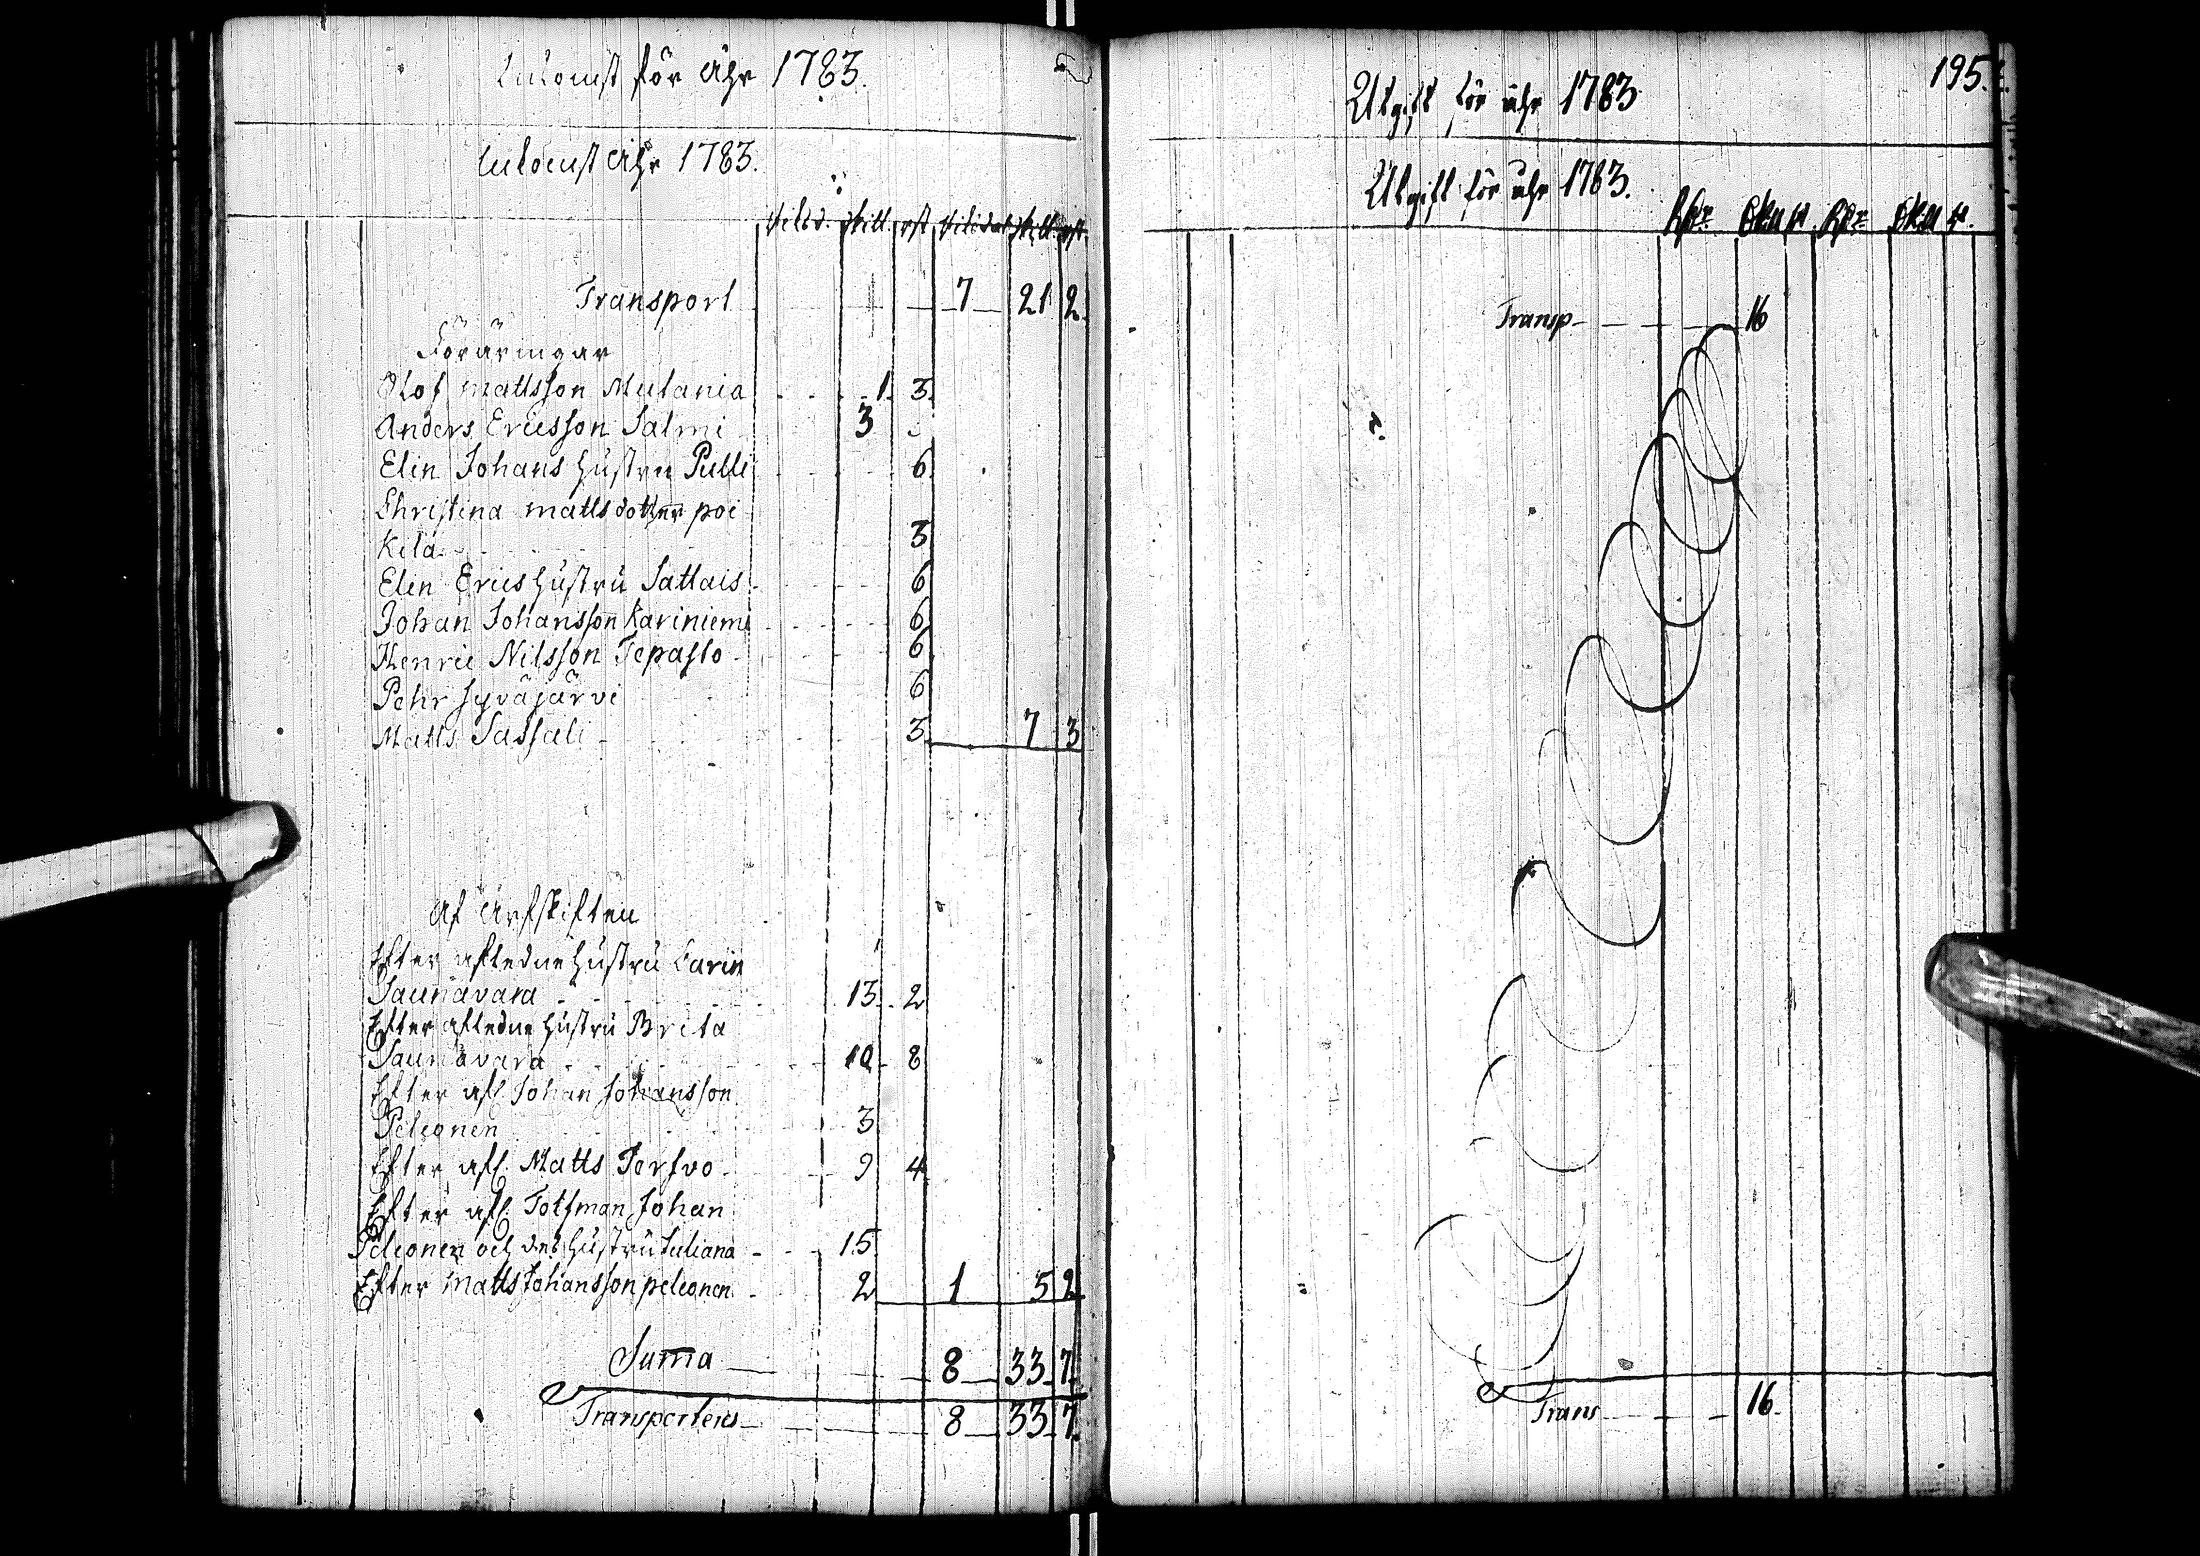 Inkomst för åhr 1783.
Inkomst åhr 1783.
skill. rst skill rst
Transport 7 21 2
Föräringar
Olof mattsson Mulania 1 3
Anders Ericsson Salmi 3
Elin Johans hustru Pulli 6
Christina matts dotter poi
kela 3
Elin Erics hustru Sattais 6
Johan Johansson Kariniemi 6
Henric Nilsson Tepasto 6
Pehr Syväjärvi 6
Matts Sassali 3 7 3
Af Arfskiften
Efter afledne hustru Carin
Saunavara 13 2
Efter afledne hustru Brita
Saunavara 10 8
Efter afl. Johan Johansson
Peleonen 3
Efter afl. Matts Torfvo 9 4
Efter afl. Tolfman Johan
Peleonen och des hustru Juliana 15
Efter Matts Johansson peleonen 2 1 5 2
Suma 8 33 7
Transporteras 8 33 7
195.
Utgift för åhr 1783
Utgift för åhr 1783.
Rdr Skll r Rdr Skll r.
Transp 16
Trans 16